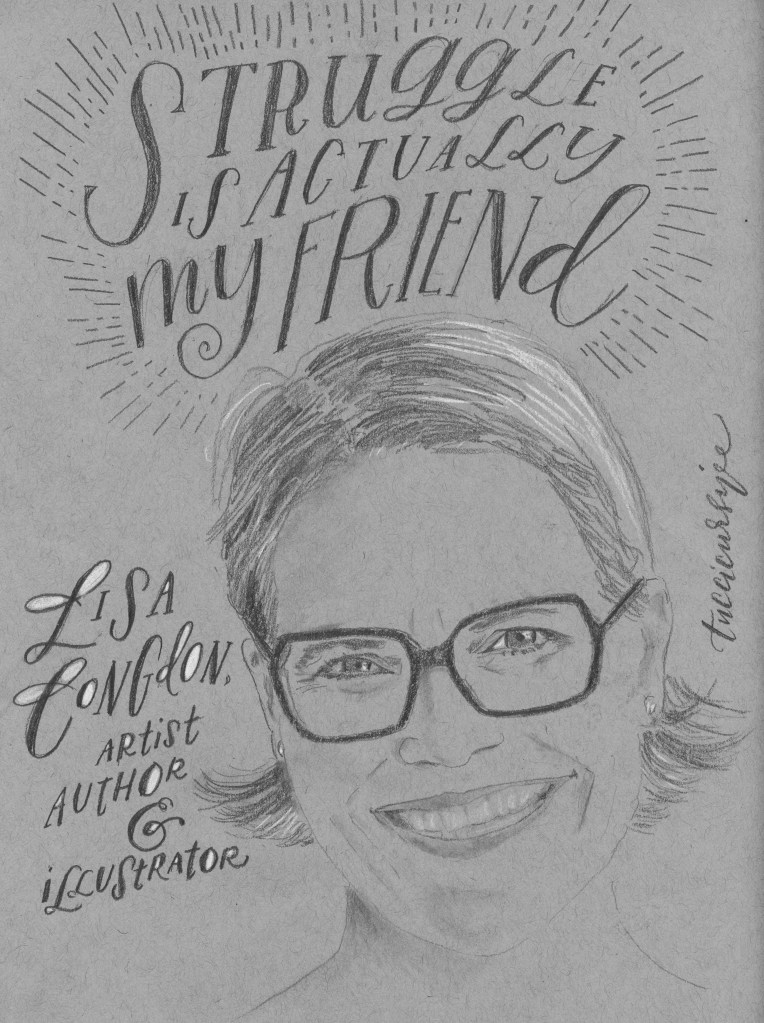 STRUGGLE
IS ACTUALLY
my FRIENd
LISA
CONGdON,
ARTIST
AUTHOR
&
iLLUStRATOR
tuccicursive